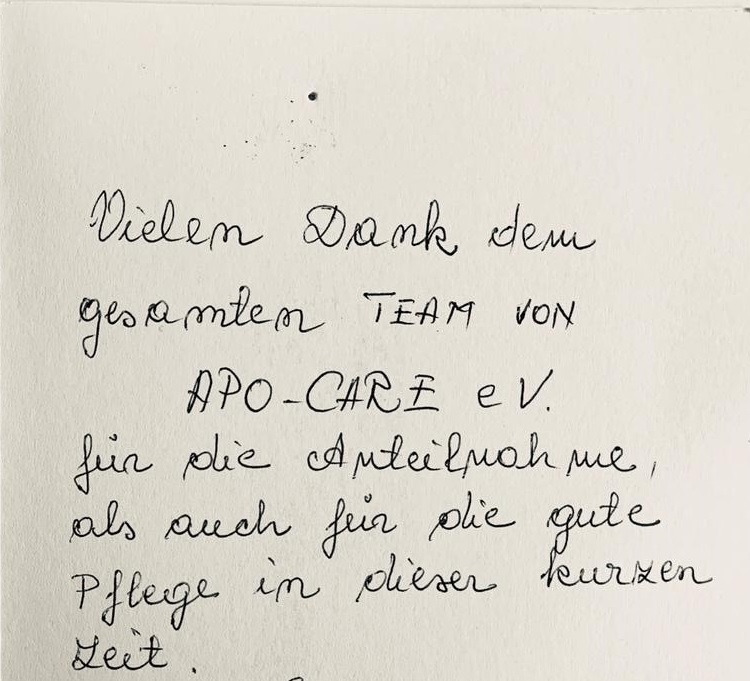 Vielen Dank dem
gesamten TEAM VON
APO-CARE eV.
für die Anteilnahme,
als auch für die gute
Pflege in dieser kurzen
Zeit.